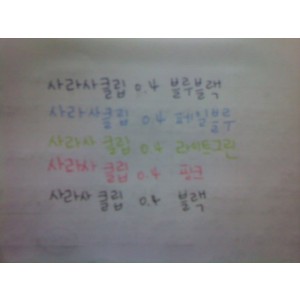 사라사클립 0.4 블루블랙
사라사클립 0.4 페일블루
사라사 클립 0.4 라이트그린
사라사 클립 0.4 핑크
사라사 클립 0.4 블랙